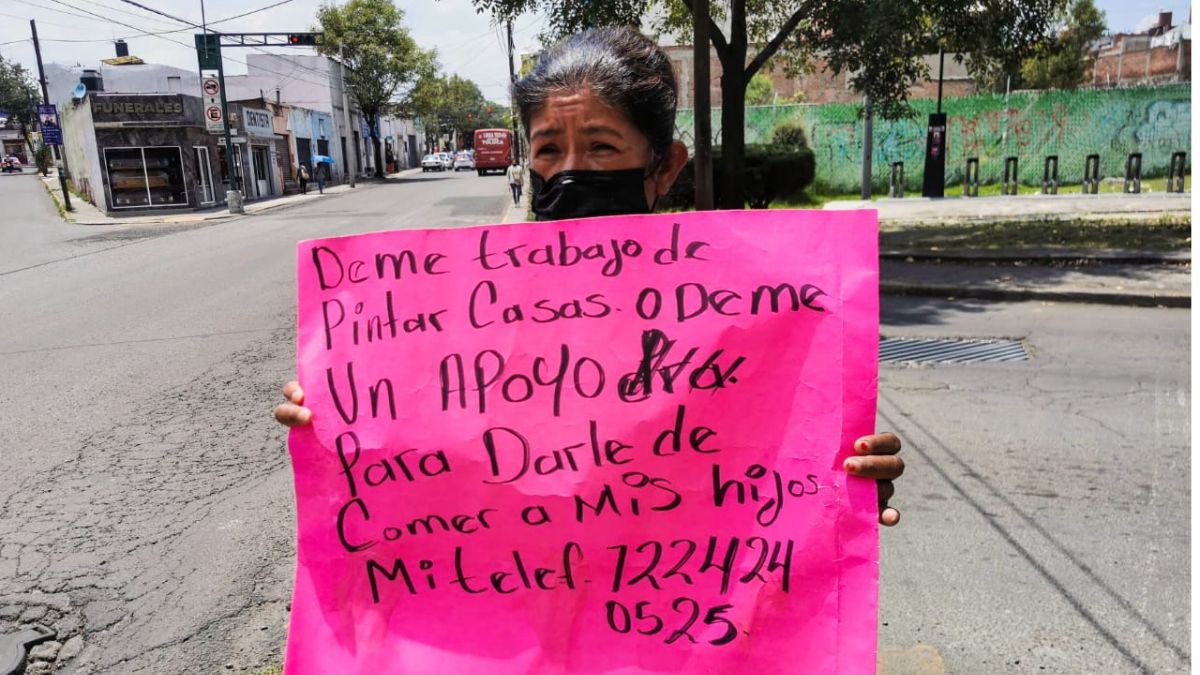 FUNERALES
DENTISTA
Deme trabajo de
Pintar Casas. o Deme
Un APoyo
Para Darle de
Comer a Mis hijos
Mi telef. 722424
0525.